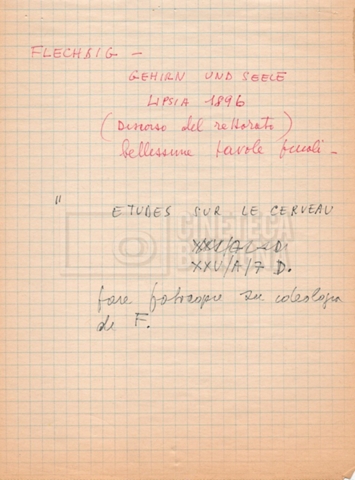 FLECHSIG —
GEHIRN UND SEELE
LIPSIA 1896
(Discorso del rettorato)
bellissime tavole finali —
" ETUDES SUR LE CERVEAU
XXV/A/7 D.
fare fotocopie su ideologia
di F.
CINETECA